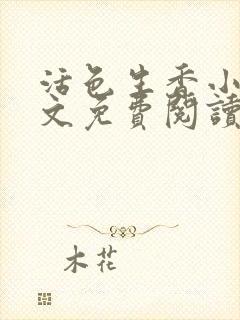 活色生香小
文免費閱讀
木花